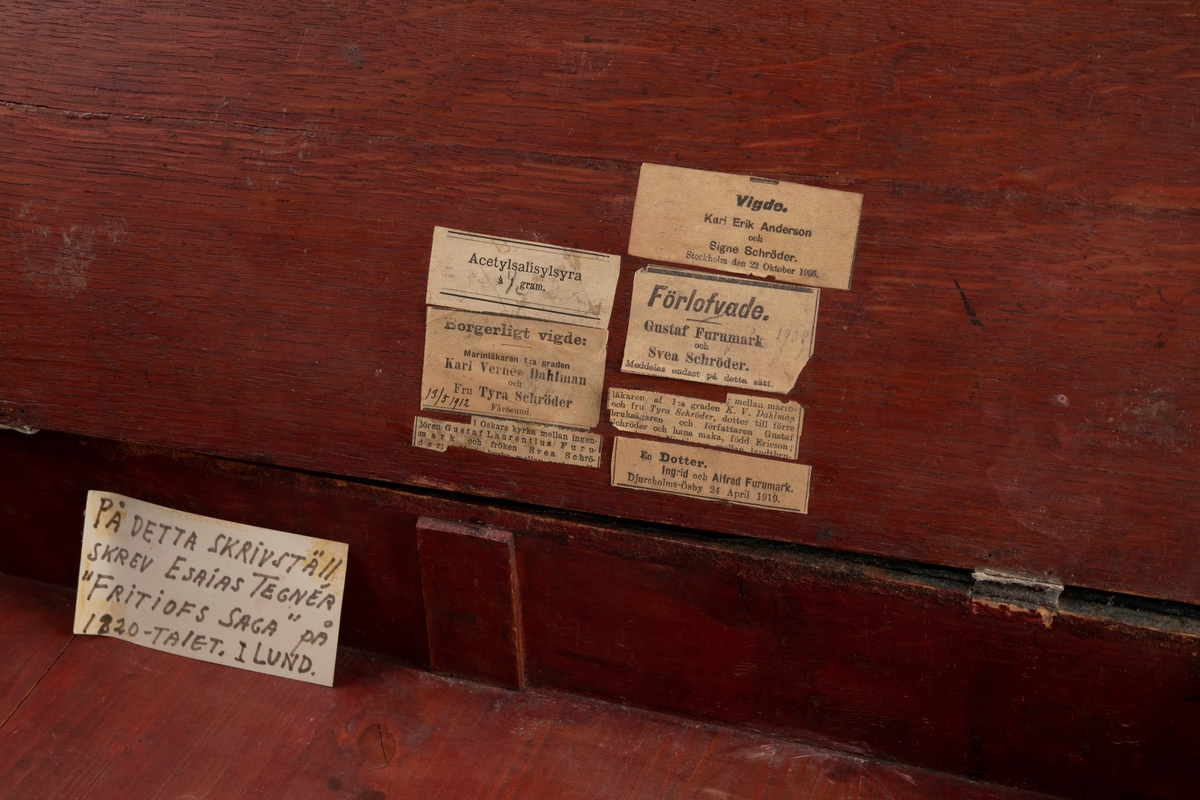 Vigde.
Karl Erik Anderson
och
Signe Schröder.
Stockholm den 22 Oktober
Acetylsalisylsyra
à gram.
Förlofvade.
Gustaf Furumark
och
Svea Schröder.
Meddelas endast på detta sätt.
Borgerligt vigde:
Marinläkaren 1:a graden
Karl Verner Dahlman
och
Fru Tyra Schröder
Fårösund.
13/5 1912
läkaren af 1:a graden K. V. Dahlman mellan marin-
och fru Tyra Schröder, dotter till förre
bruksägaren och författaren Gustaf
Schröder och hans maka, född Ericson;
I Oskars kyrka mellan ingen-
jören Gustaf Laurentius Furu-
mark och fröken Svea Schrö-
der;
En Dotter.
Ingrid och Alfred Furumark.
Djursholms-Ösby 24 April 1919.
PÅ DETTA SKRIVSTÄLL
SKREV ESAIAS TEGNÉR
"FRITIOFS SAGA" på
1820-TALET. I LUND.